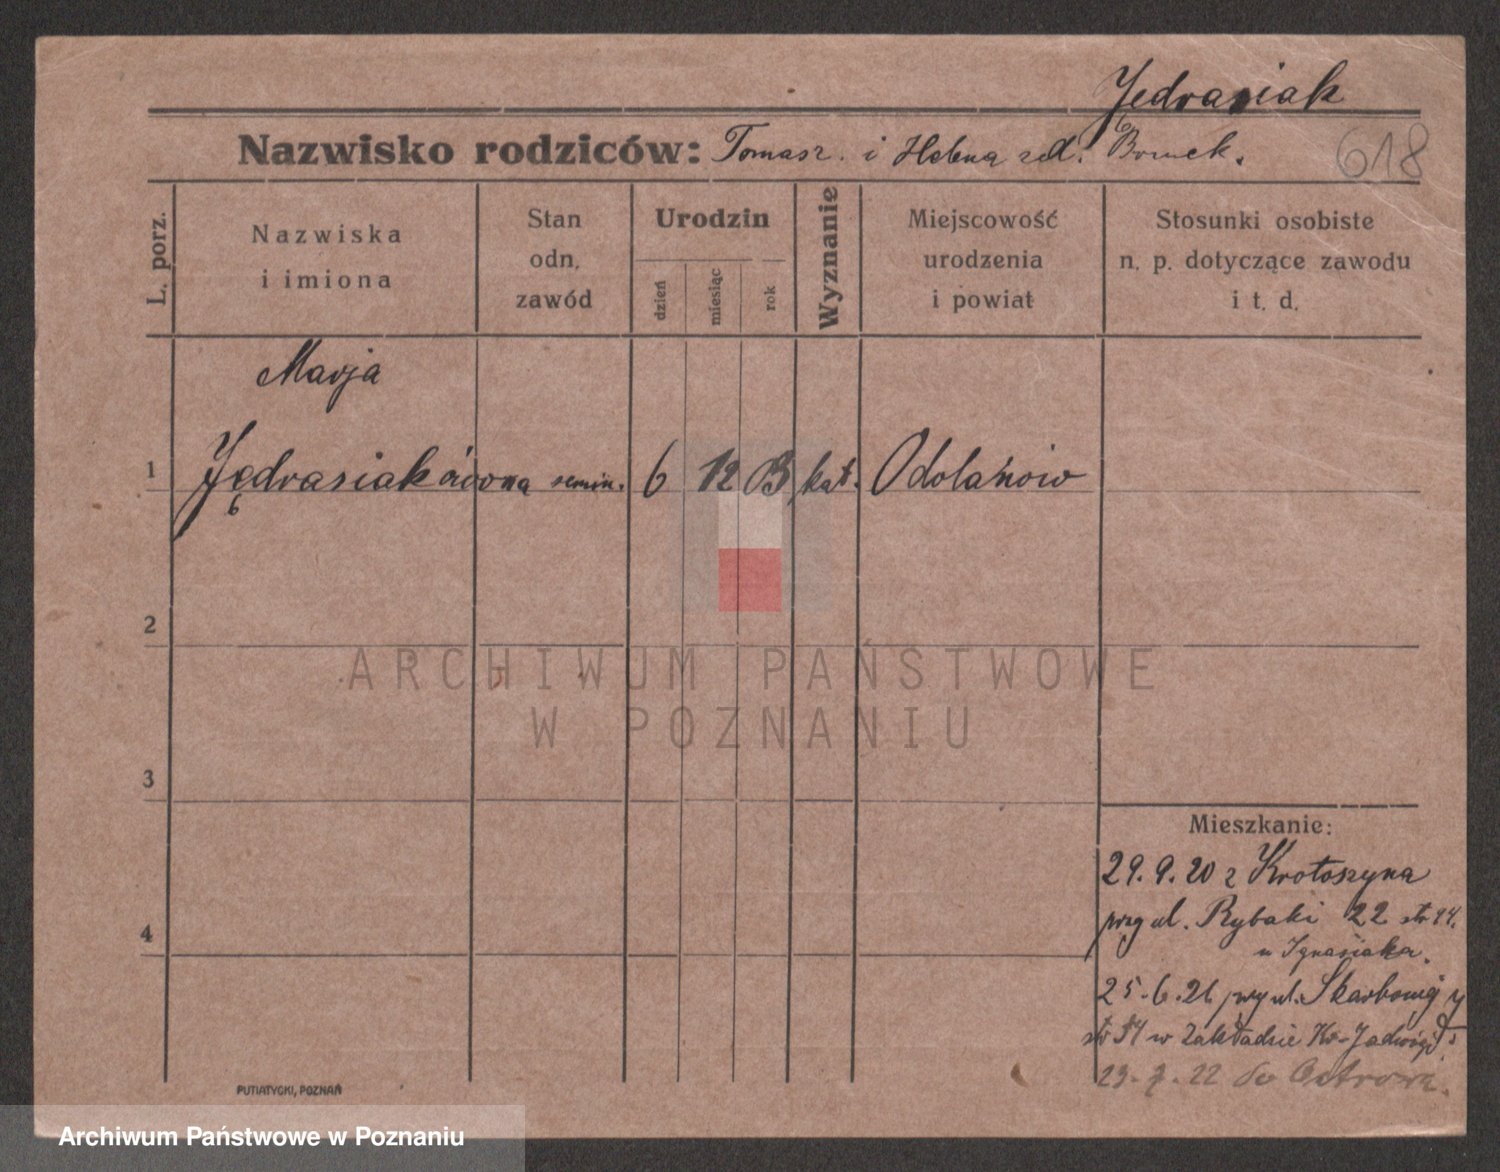 Jędrasiak
Nazwisko rodziców: Tomasz. i Helena
618
L. porz.
Nazwiska
i imiona
Stan
odn.
zawód
Urodzin
dzień
miesiąc
rok
Wyznanie
Miejscowość
urodzenia
i powiat
Stosunki osobiste
n. p. dotyczące zawodu
i t. d.
Marja
1 Jędrasiakówna semin. 6 12 kat. Odolanów
2
ARCHIWUM PAŃSTWOWE
W POZNANIU
3
Mieszkanie:
29.9.20 z Krotoszyna
przy ul. Rybaki 22 str 24.
u Ignasiaka.
4
25.6.21 przy ul. Skarbowej
w Zakładzie Jadwigi
22 do Ostrowa.
PUTIATYCKI, POZNAŃ
Archiwum Państwowe w Poznaniu